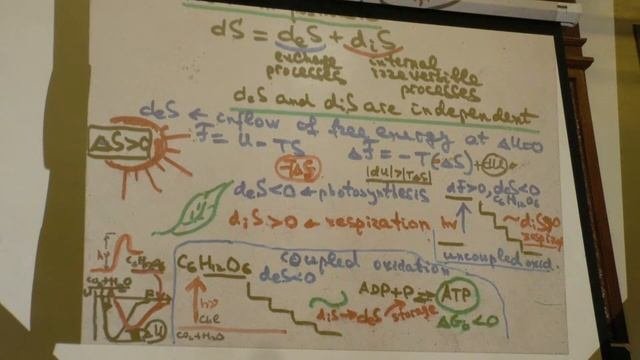 dS = deS + diS
exchange processes
internal irreversible processes
deS and diS are independent
deS ← inflow of free energy at ΔU=0
ΔS>0
F = U - TS
ΔF = -T(-ΔS) + ΔU
-ΔS
|dU|>|TΔS|
deS<0 ← photosynthesis
dF>0, deS<0
C6H12O6
diS>0 ← respiration
hν
~diS>0
uncoupled oxid.
coupled oxidation
C6H12O6
deS<0
hν
ADP+P ⇌ ATP
diS→deS
storage
ΔG0<0
CO2+H2O
CO2+H2O
ΔU